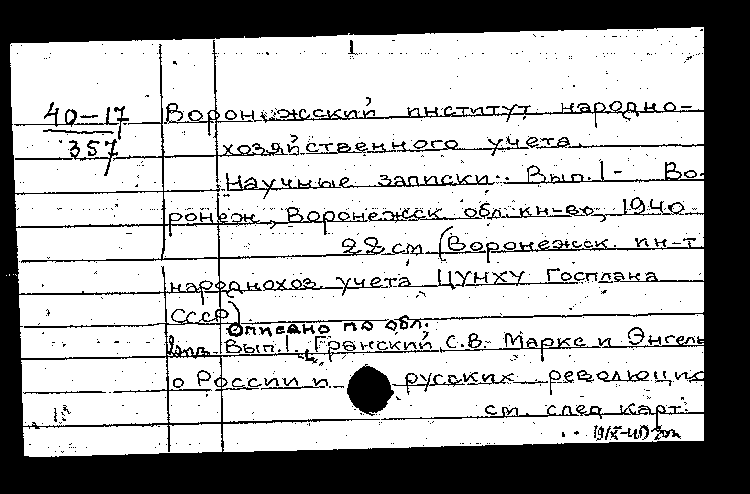 40-17 Воронежский институт народно-
357 хозяйственного учета.
Научные записки. Вып. 1- Во-
ронеж, Воронежск. обл. кн-во, 1940
22 см (Воронежск. ин-т
народнохоз. учета ЦУНХУ Госплана
СССР)
Описано по обл.
Вып. 1. Гранский, С.В. Маркс и Энгель
о России и русских революцио
см. след карт.